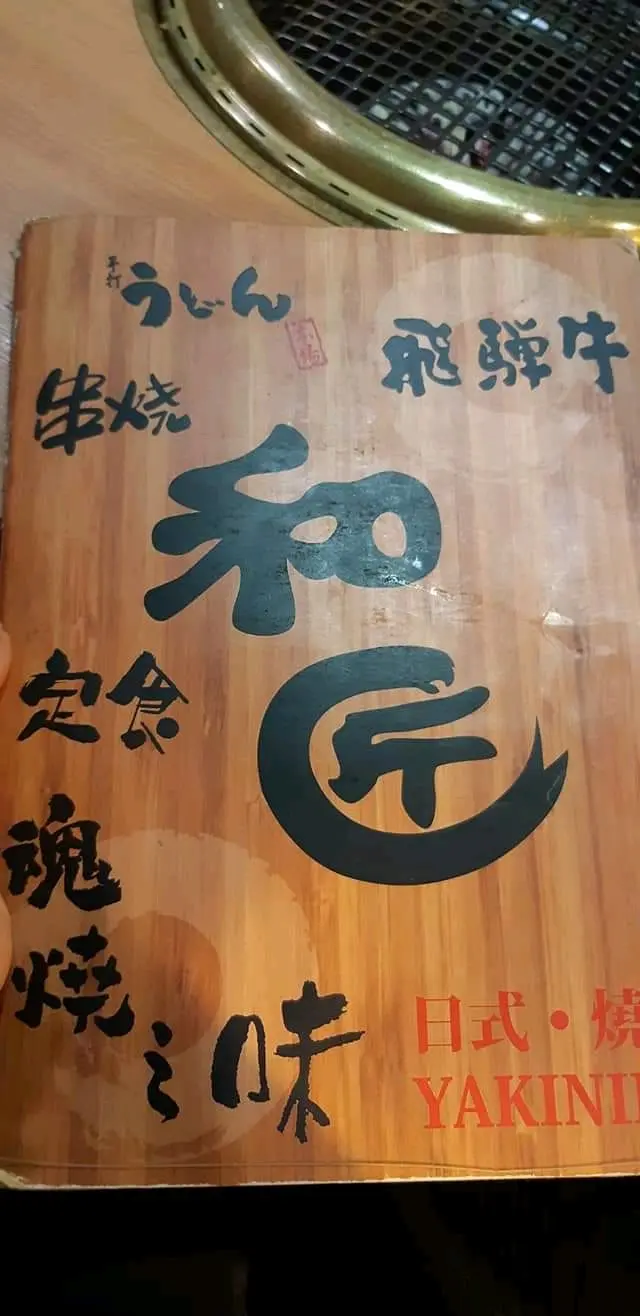 手打
うどん
飛騨牛
串烧
和
匠
定食
魂
燒
之味
日式・燒
YAKINI